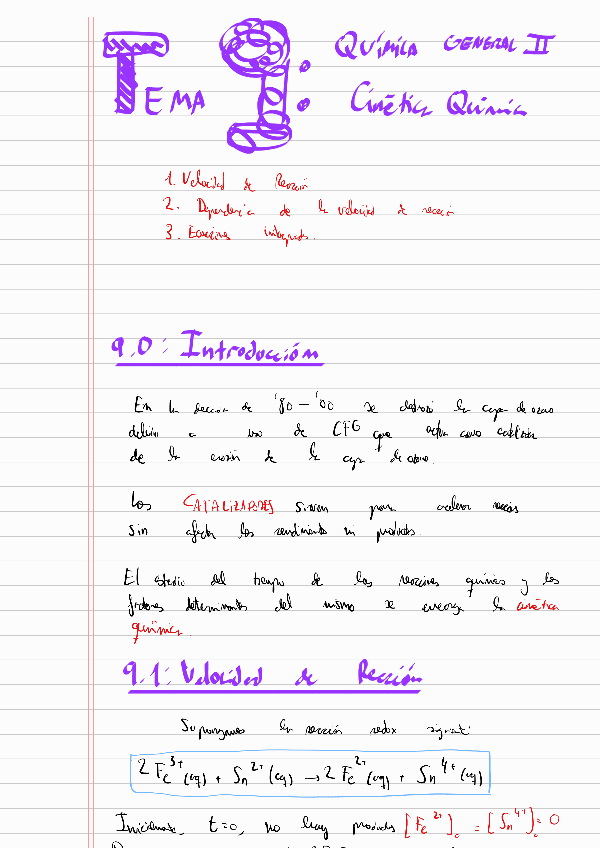 TEMA 9: QUÍMICA GENERAL II
Cinética Química
1. Velocidad de Reacción
2. Dependencia de la velocidad de reacción
3. Ecuaciones integradas.
9.0: Introducción
En la decada de '80 - '00 se destruyó la capa de ozono
debido a uso de CFC que actua como catalizador
de la erosión de la capa de ozono.
Los CATALIZADORES sirven para acelerar
sin afectar los rendimiento ni productos.
El estudio del tiempo de las reacciones químicas y los
factores determinantes del mismo se encarga la cinética
química.
9.1: Velocidad de Reacción
Supongamos la reacción redox siguiente:
2 Fe³⁺ (aq) + Sn²⁺ (aq) → 2 Fe²⁺ (aq) + Sn⁴⁺ (aq)
Inicialmente, t=0, no hay productos [Fe²⁺]₀ = [Sn⁴⁺]₀ = 0